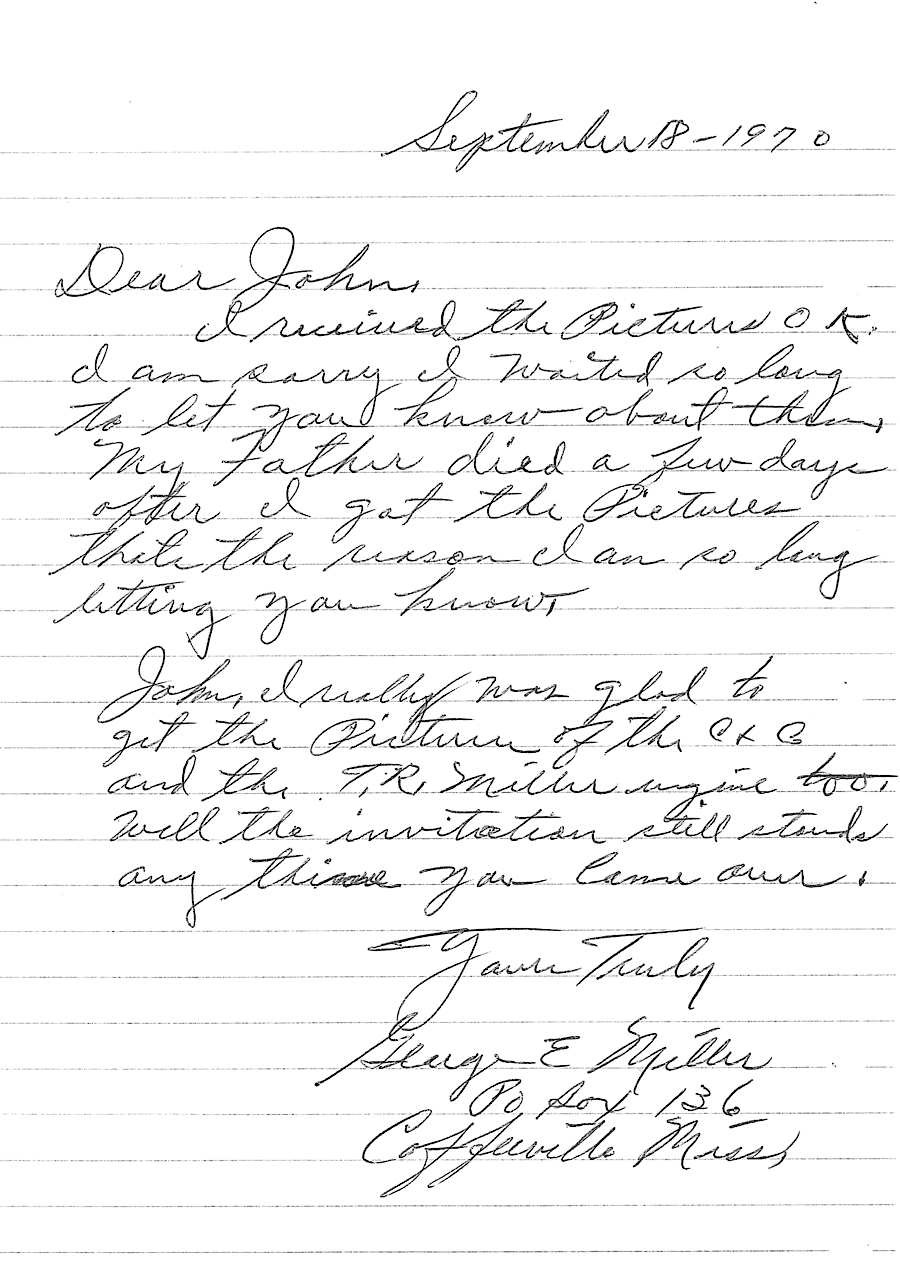 September 18-1970
Dear John,
I received the Pictures OK.
I am sorry I waited so long
to let you know about them,
My Father died a few days
after I got the Pictures
thats the reason I am so long
letting you know,
John, I really was glad to
get the Picture of the C & G
and the T.R. Miller engine too.
Well the invitation still stands
any you Came over.
Yours Truly
George E Miller
PO Box 136
Coffeeville Miss,